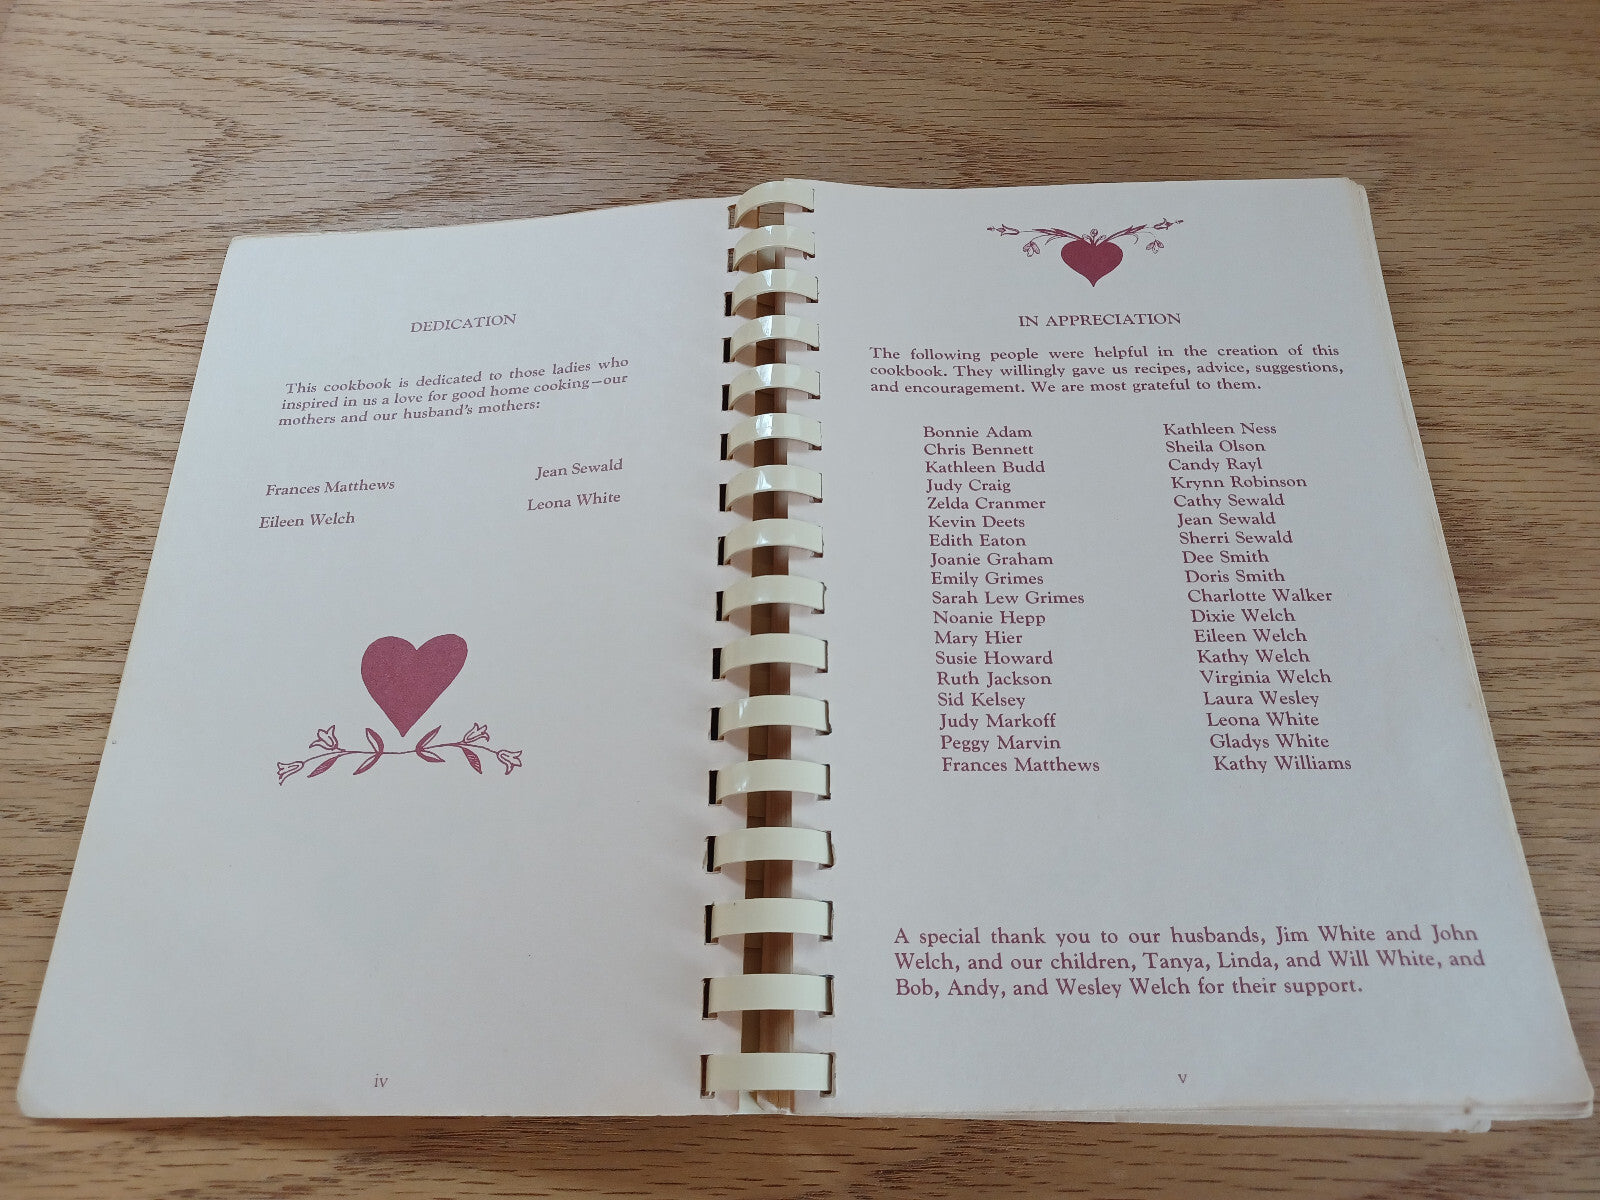 DEDICATION
This cookbook is dedicated to those ladies who
inspired in us a love for good home cooking—our
mothers and our husband's mothers:
Frances Matthews
Jean Sewald
Eileen Welch
Leona White
iv
IN APPRECIATION
The following people were helpful in the creation of this
cookbook. They willingly gave us recipes, advice, suggestions,
and encouragement. We are most grateful to them.
Bonnie Adam
Chris Bennett
Kathleen Budd
Judy Craig
Zelda Cranmer
Kevin Deets
Edith Eaton
Joanie Graham
Emily Grimes
Sarah Lew Grimes
Noanie Hepp
Mary Hier
Susie Howard
Ruth Jackson
Sid Kelsey
Judy Markoff
Peggy Marvin
Frances Matthews
Kathleen Ness
Sheila Olson
Candy Rayl
Krynn Robinson
Cathy Sewald
Jean Sewald
Sherri Sewald
Dee Smith
Doris Smith
Charlotte Walker
Dixie Welch
Eileen Welch
Kathy Welch
Virginia Welch
Laura Wesley
Leona White
Gladys White
Kathy Williams
A special thank you to our husbands, Jim White and John
Welch, and our children, Tanya, Linda, and Will White, and
Bob, Andy, and Wesley Welch for their support.
v